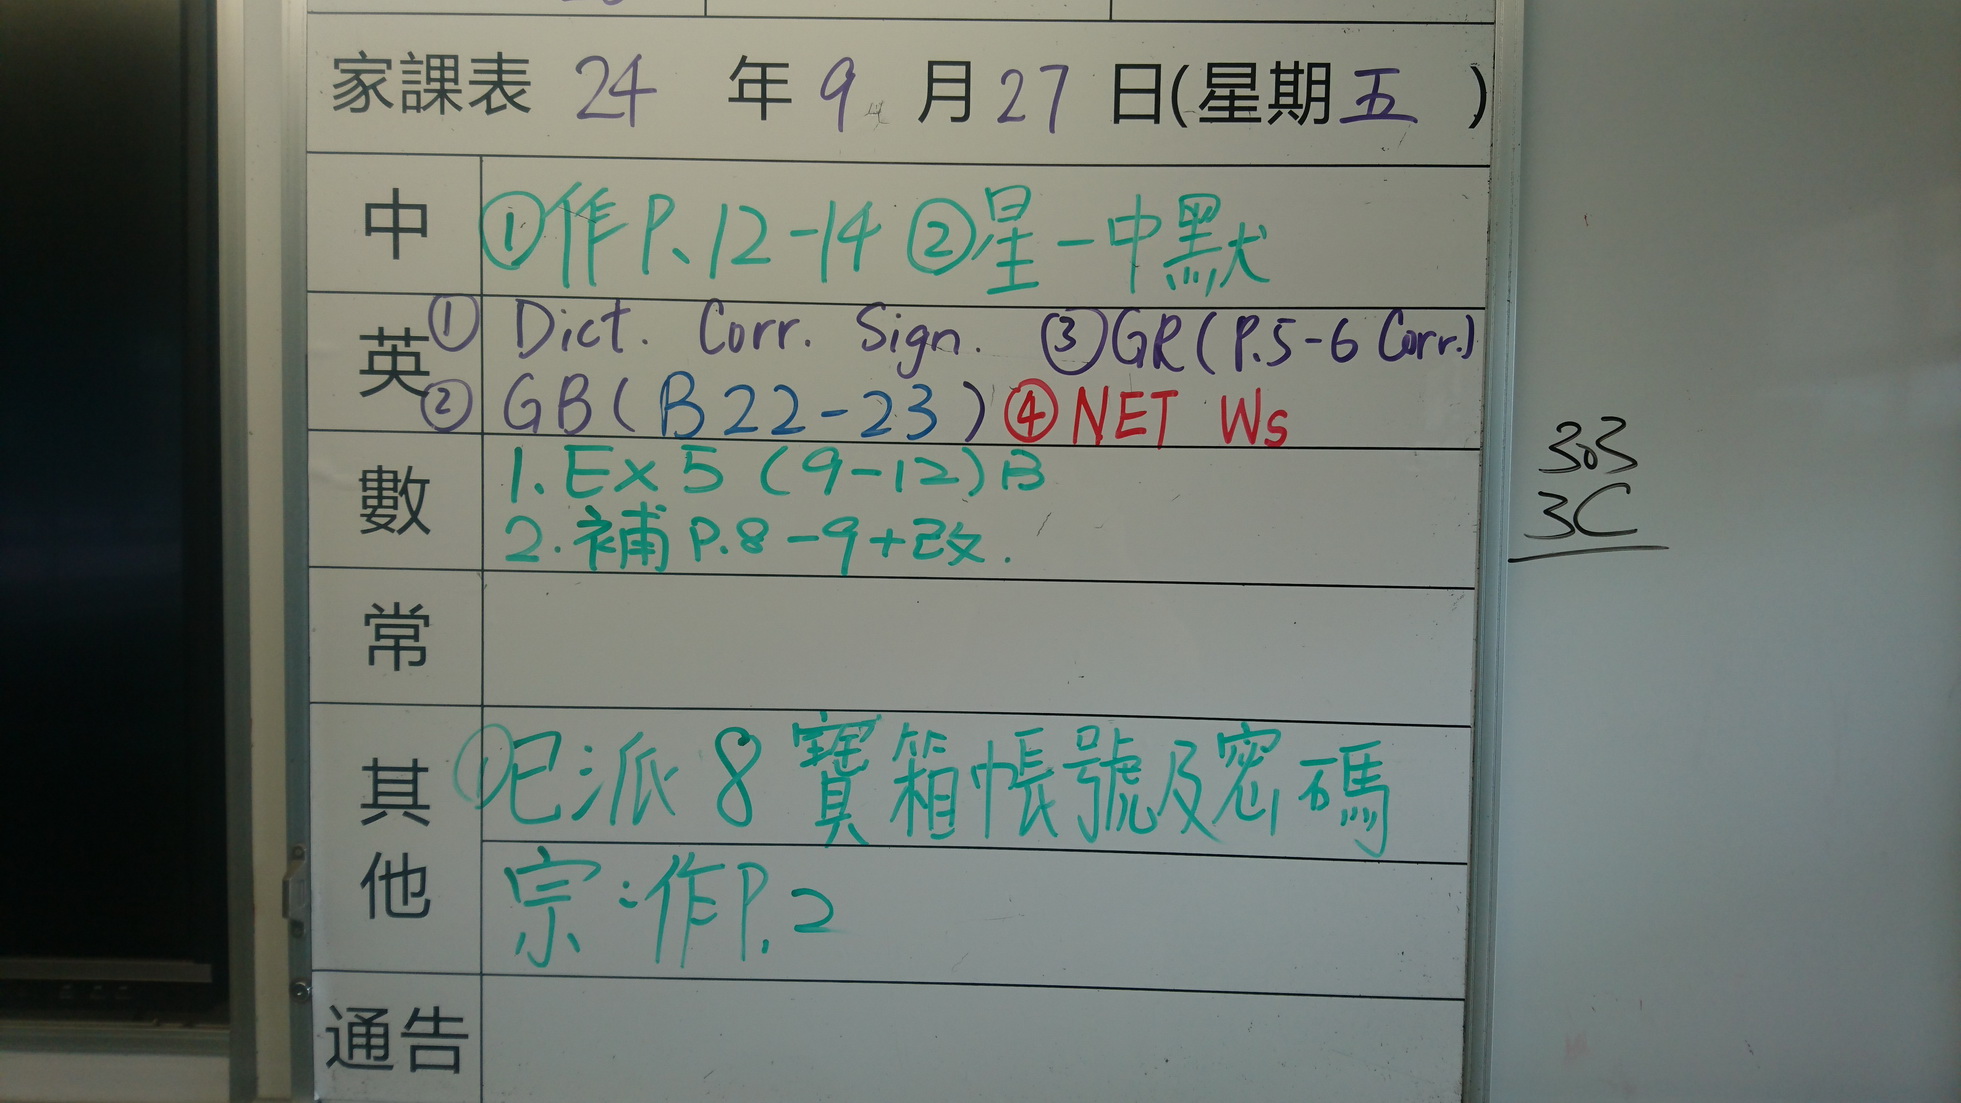 家課表 24 年 9 月 27 日(星期五 )
中 ①作P.12-14 ②星一中默
英 ① Dict. Corr. Sign. ③GR(P.5-6 Corr.)
② GB(B22-23) ④NET Ws
數 1. Ex 5 (9-12)B
2. 補 P.8-9+改.
常
其他 ①已派8寶箱帳號及密碼
宗:作P.2
通告
303
3C